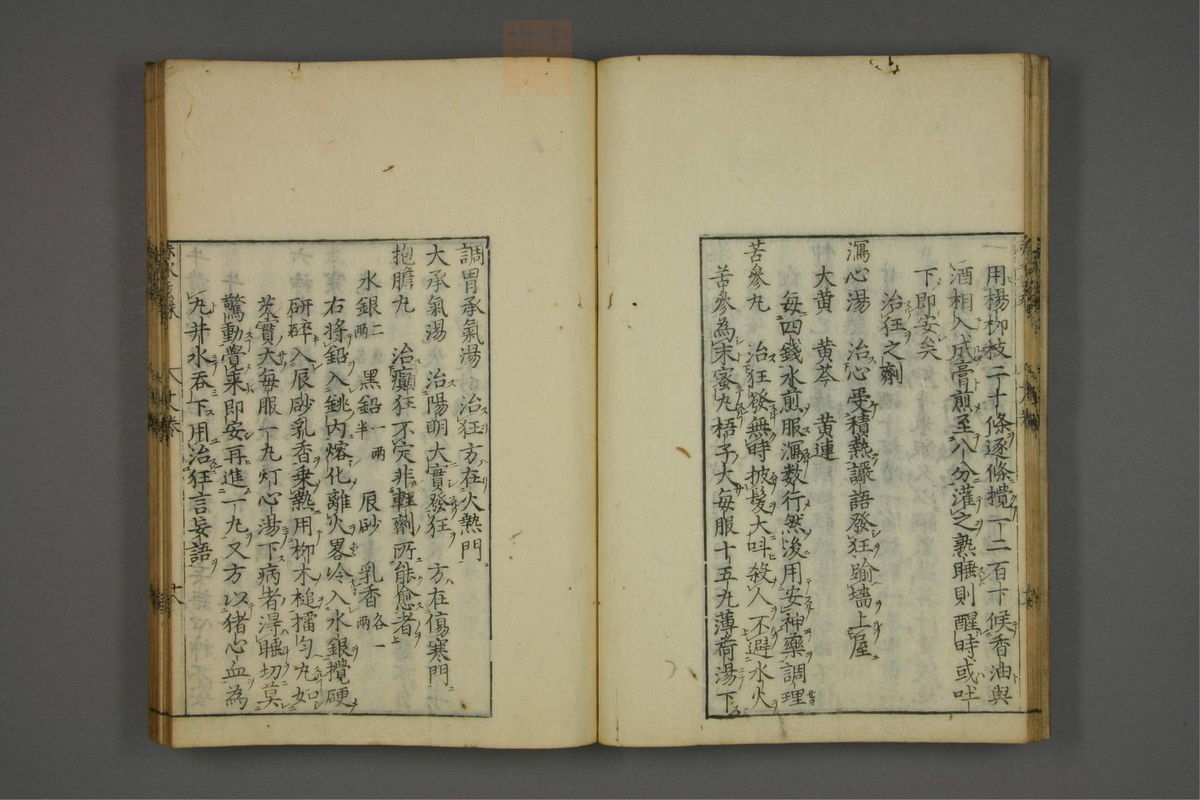 用楊柳枝二十條逐條攪一二百下候香油與
酒相入成膏煎至八分灌之熟睡則醒時或吐
下即安矣
治狂之劑
瀉心湯　治心受積熱譫語發狂踰墻上屋
大黄　黄芩　黄連
每四錢水煎服瀉數行然後用安神藥調理
苦參丸　治狂發無時披髪大呌殺人不避水火
苦參為末蜜丸梧子大每服十五丸薄荷湯下
調胃承氣湯　治狂方在火熱門
大承氣湯　治陽明大實發狂　方在傷寒門
抱膽丸　治癲狂不定非輕劑所能愈者
水銀二兩　黑鉛一兩半　辰砂　乳香各一兩
右將鉛入銚内熔化離火畧冷入水銀攪硬
研碎入辰砂乳香乗熱用柳木槌擂勻丸如
芡實大每服一丸灯心湯下病者得睡切莫
驚動覺来即安再進一丸又方以猪心血為
丸井水吞下用治狂言妄語